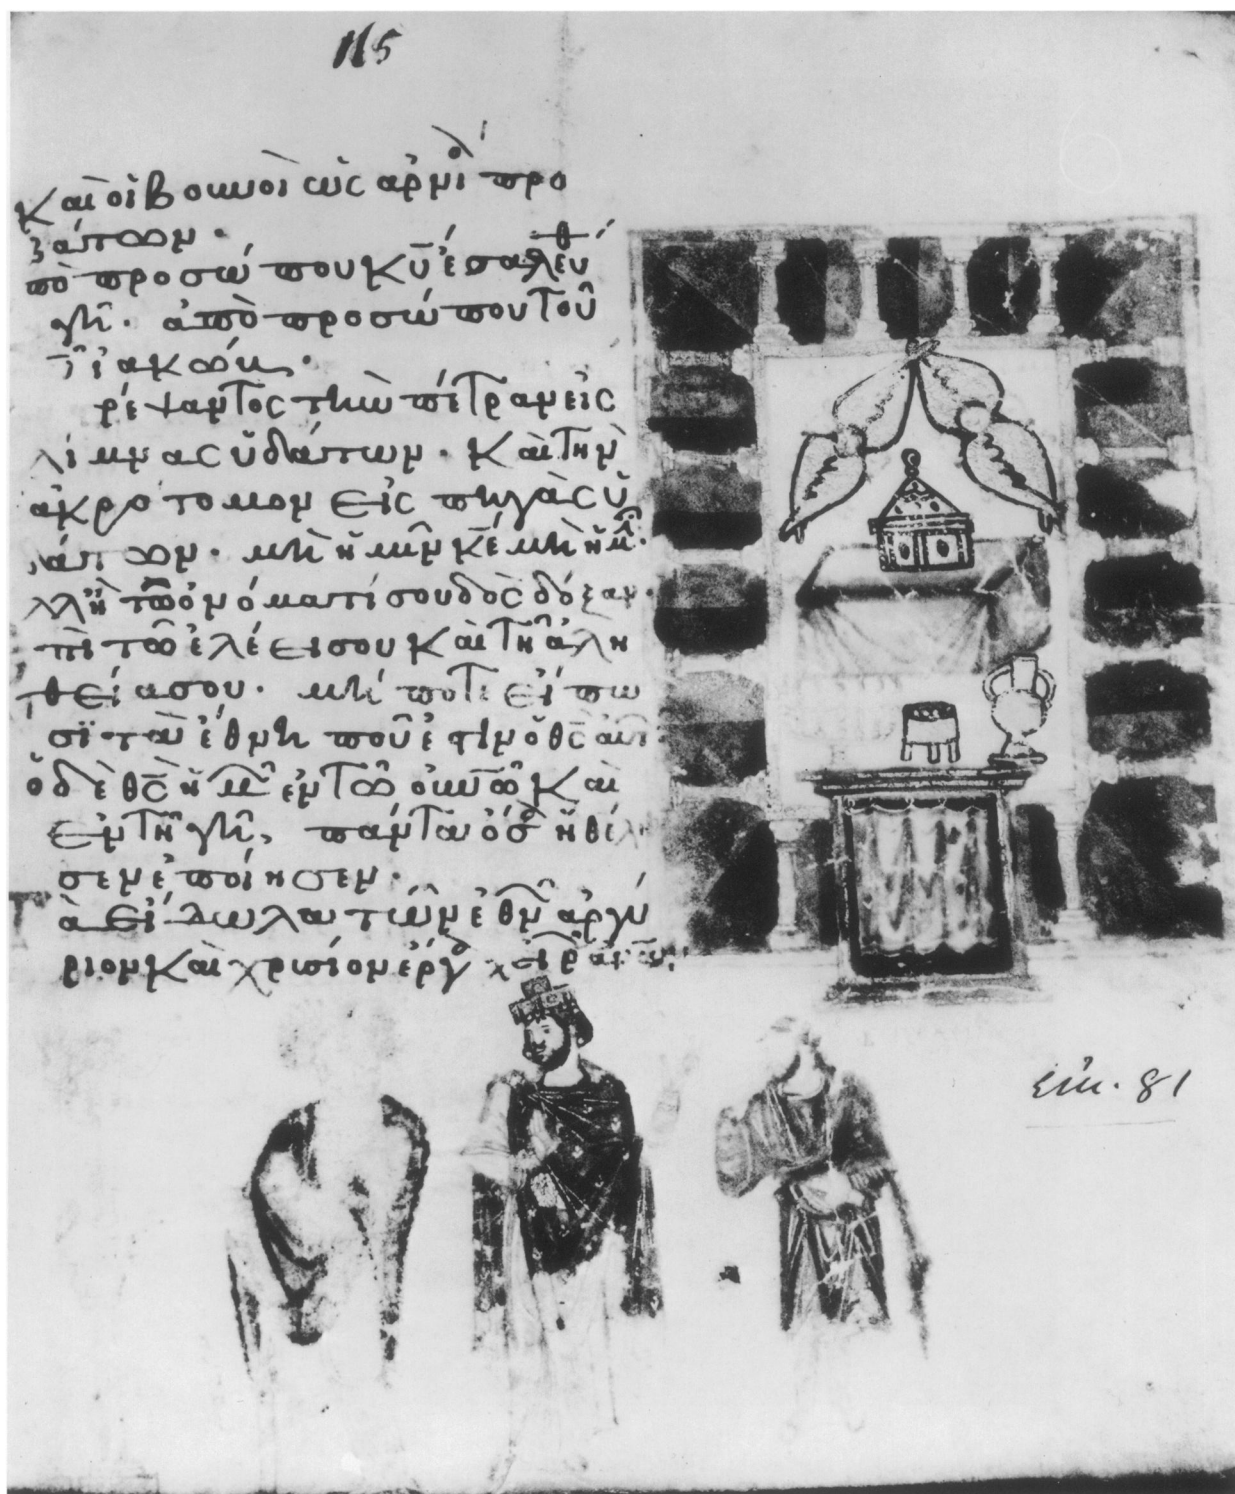 115
Καὶ οἱ βουνοὶ ὡς ἀρνί προ
βάτων·
πὸ προσώπου κ̅υ̅ ἐσαλεύθ
γῆ· ἀπὸ προσώπου τοῦ
ἰακώβ·
ρέψαντος τὴν πέτραν εἰς
λίμνας ὑδάτων· Καὶ τὴν
ἀκρότομον εἰς πηγὰς ὑ
άτων· μὴ ἡμῖν κ̅ε̅ μὴ ἡμ·
λλ ἢ τῶ ὀνόματί σου δὸς δόξαν·
πὶ τῶ ἐλέει σου Καὶ τῆ ἀλη
θεία σου· μή ποτε εἴπω
σϊ τὰ ἔθνη ποῦ ἐστιν ὁ θ̅ς̅ αὐτ
ὁ δὲ θ̅ς̅ ἡμ ἐν τῶ οὐνῶ Καὶ
ἐν τῆ γῆ, πάντα ὅσ ἠθέλη
σεν ἐποίησεν·
ὰ εἴδωλα τῶν ἐθν ἀργύ
ριον Καὶ χρυσίον ἔργ χειρ
εἰκ. 81